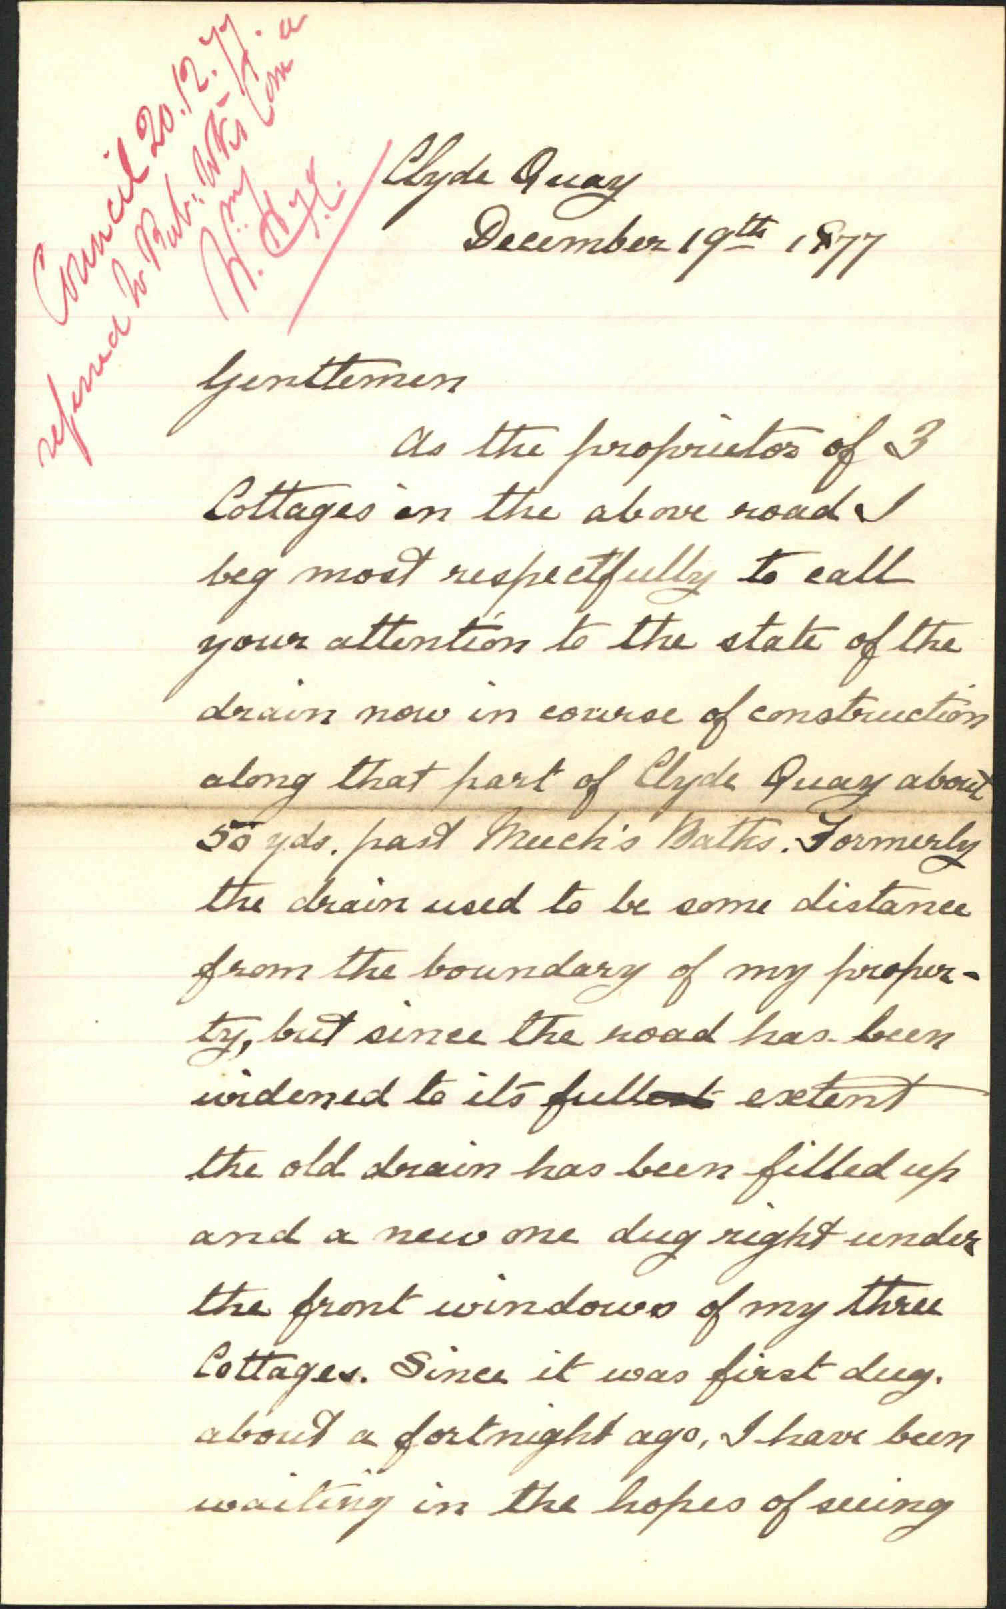 Council 20.12.77.
referred to Pub: Wks Com
W. H
Clyde Quay
December 19th 1877
Gentlemen
As the proprietor of 3
Cottages in the above road I
beg most respectfully to call
your attention to the state of the
drain now in course of construction
along that part of Clyde Quay about
50 yds. past Meech's Baths. Formerly
the drain used to be some distance
from the boundary of my proper-
ty, but since the road has been
widened to its full extent
the old drain has been filled up
and a new one dug right under
the front windows of my three
Cottages. Since it was first dug.
about a fortnight ago, I have been
waiting in the hopes of seeing